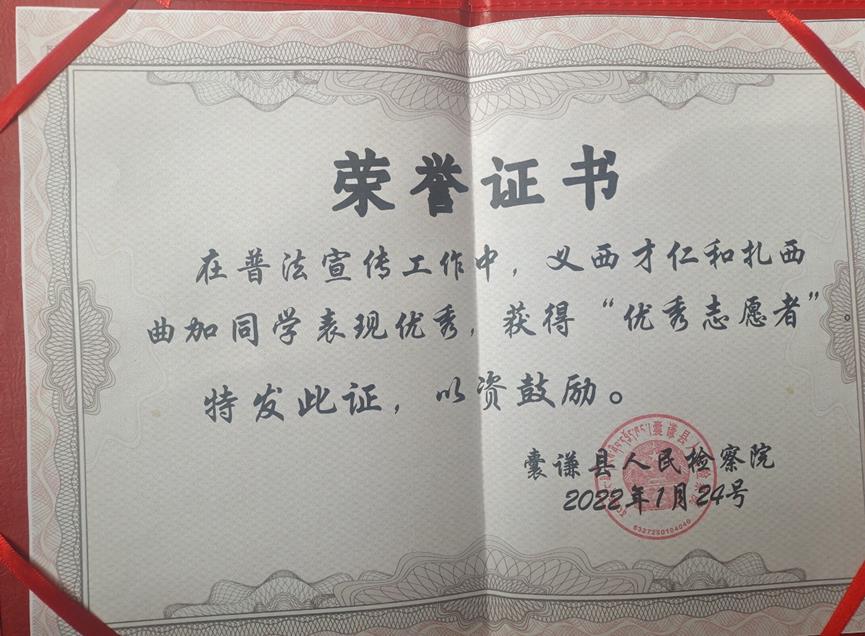 荣誉证书
在普法宣传工作中，义西才仁和扎西
曲加同学表现优秀，获得“优秀志愿者”。
特发此证，以资鼓励。
囊谦县人民检察院
2022年1月24号
6327250104040